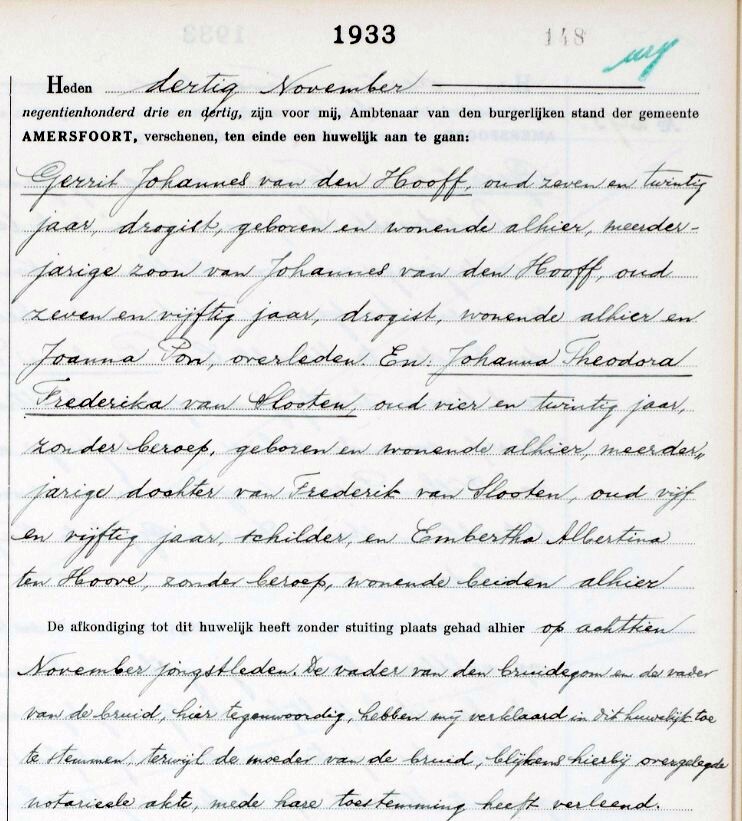 1933
148
Heden dertig November
negentienhonderd drie en dertig, zijn voor mij, Ambtenaar van den burgerlijken stand der gemeente
AMERSFOORT, verschenen, ten einde een huwelijk aan te gaan:
Gerrit Johannes van den Hooff, oud zeven en twintig
jaar, drogist, geboren en wonende alhier, meerder-
jarige zoon van Johannes van den Hooff, oud
zeven en vijftig jaar, drogist, wonende alhier en
Joanna Pon, overleden. En: Johanna Theodora
Frederika van Slooten, oud vier en twintig jaar,
zonder beroep, geboren en wonende alhier, meerder„
jarige dochter van Frederik van Slooten, oud vijf
en vijftig jaar, schilder, en Embertha Albertina
ten Hoove, zonder beroep, wonende beiden alhier
De afkondiging tot dit huwelijk heeft zonder stuiting plaats gehad alhier op achttien
November jongstleden. De vader van den bruidegom en de vader
van de bruid, hier tegenwoordig, hebben mij verklaard in dit huwelijk toe
te stemmen, terwijl de moeder van de bruid, blijkens hierbij overgelegde
notarieele akte, mede hare toestemming heeft verleend.